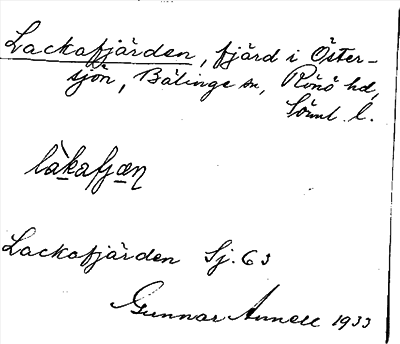 Lackafjärden, fjärd i Öster-
sjön, Bälinge sn, Rönö hd,
Söml. l.
làkafjæn
Lackafjärden Sj. 63
Gunnar Annell 1933